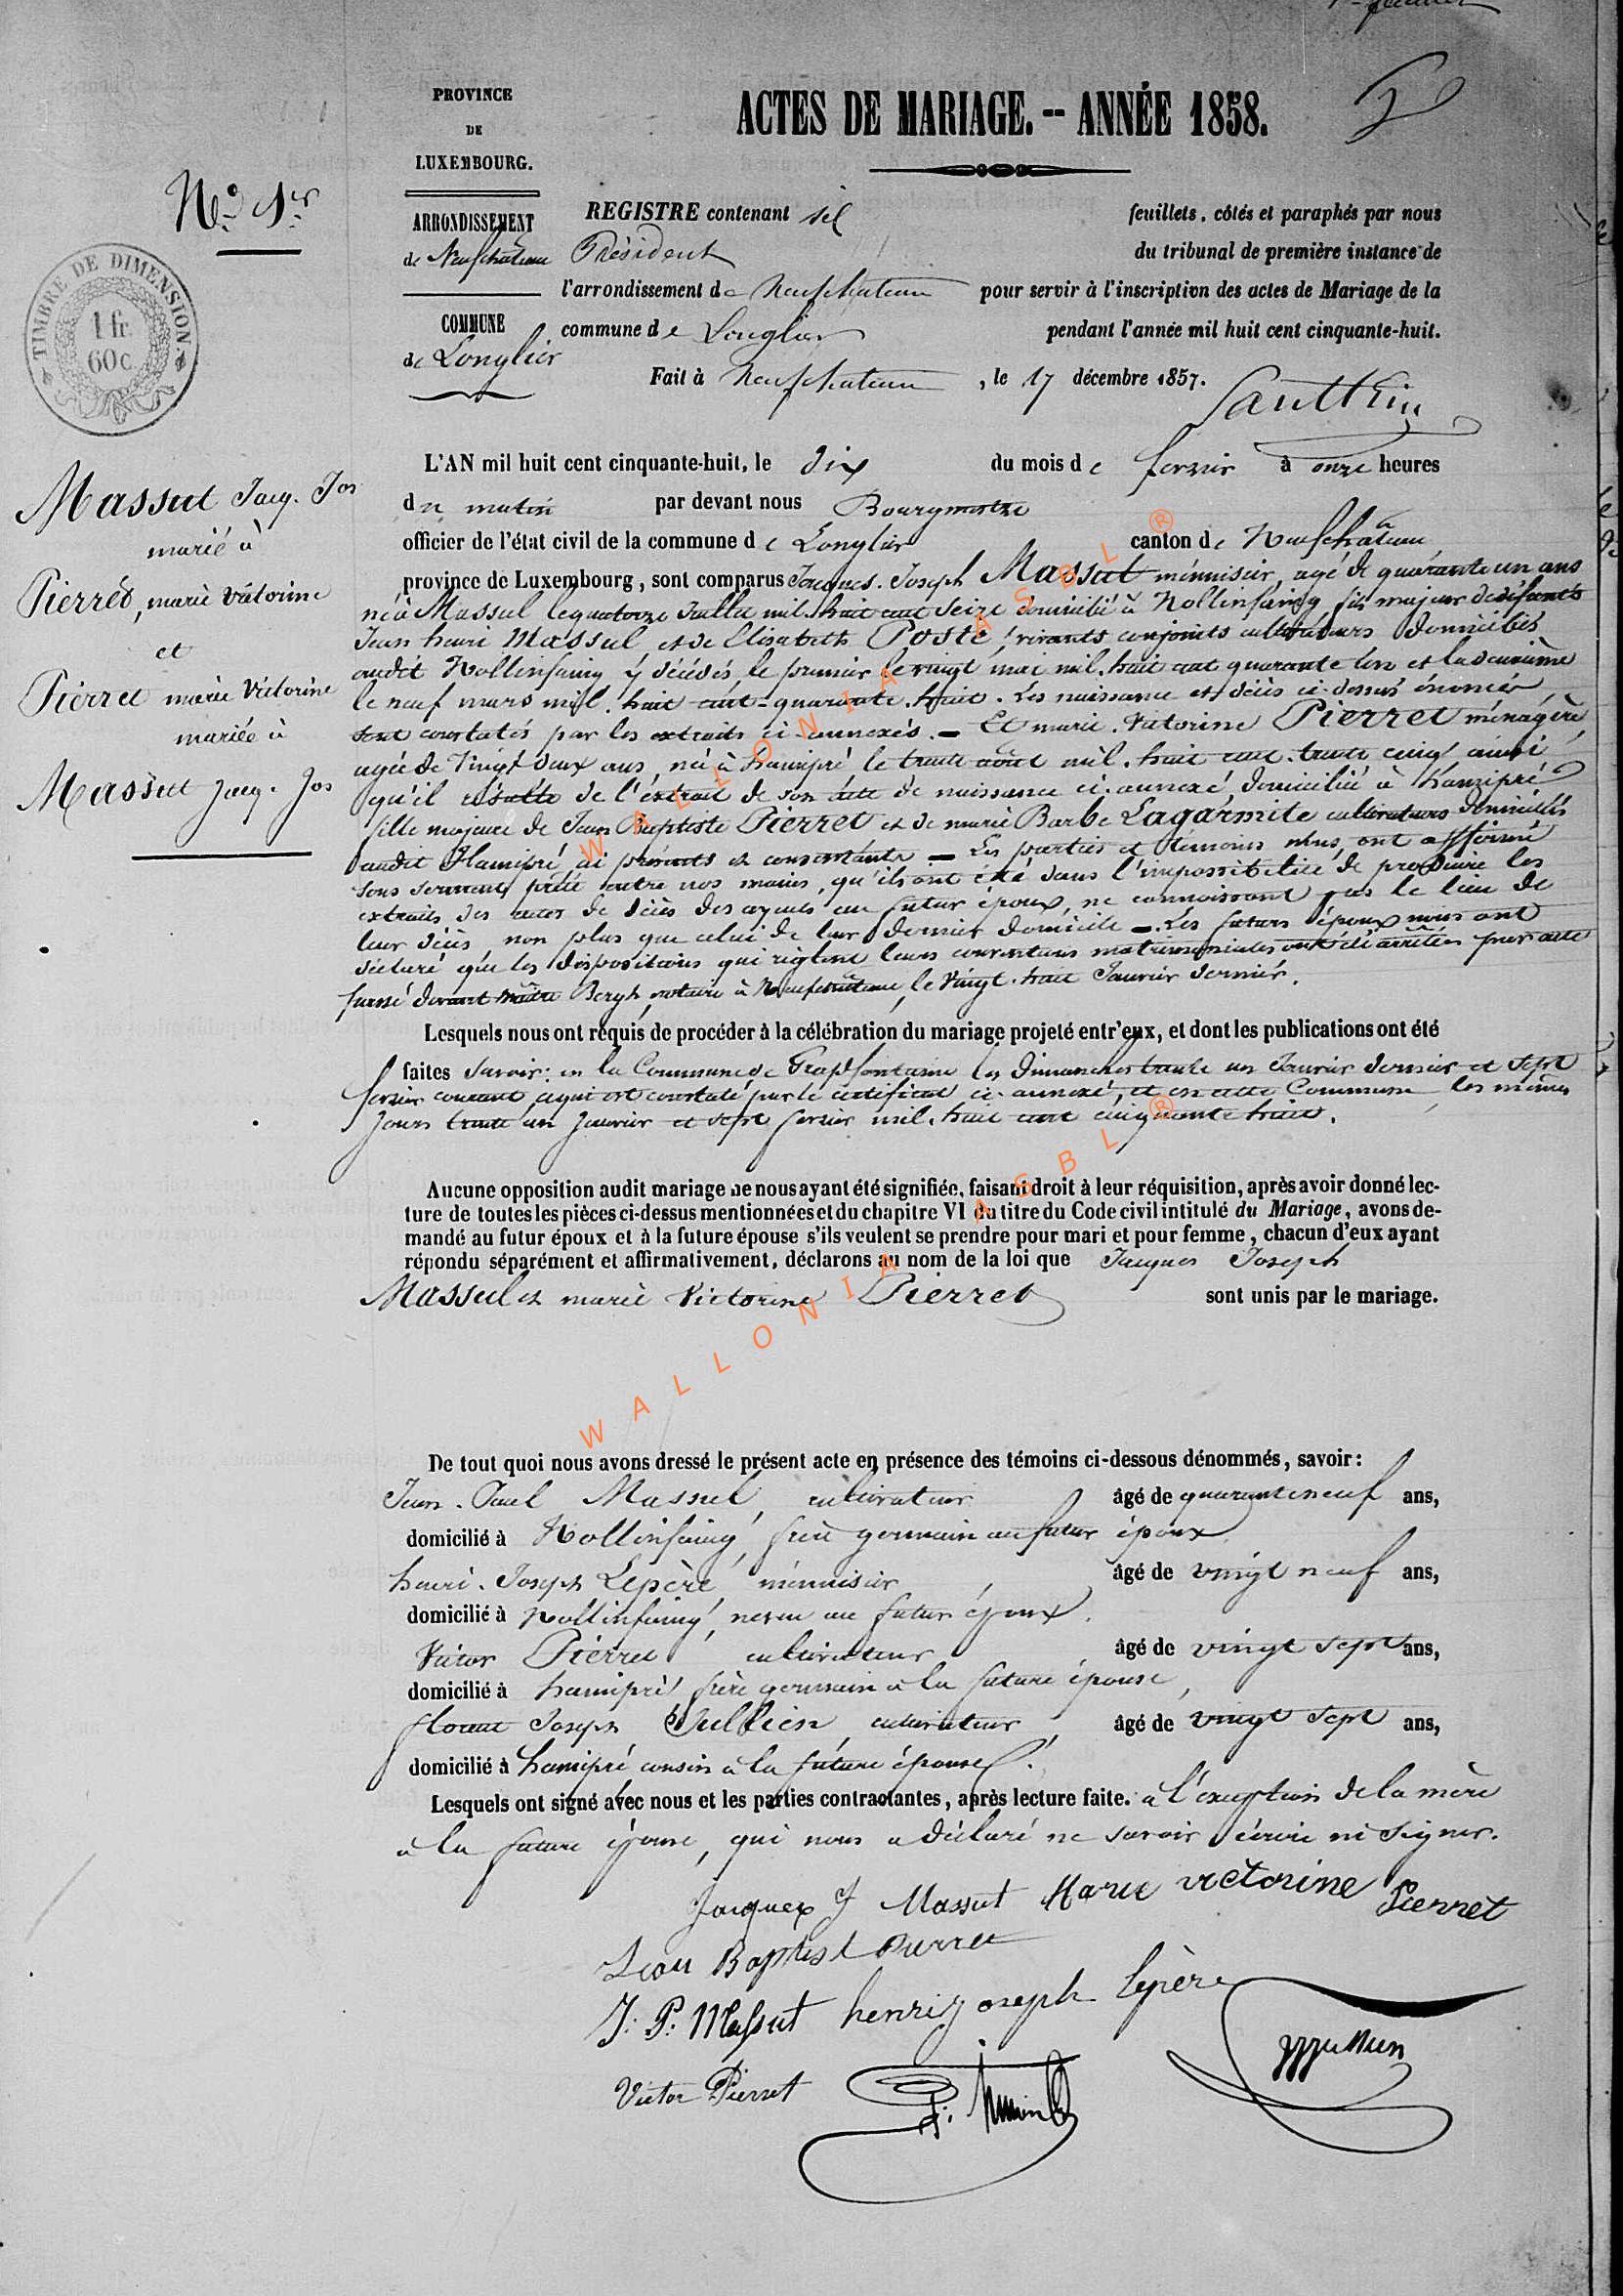 PROVINCE
DE
LUXEMBOURG.
ACTES DE MARIAGE. -- ANNÉE 1858.
No. 1er
ARRONDISSEMENT
de Neufchateau
COMMUNE
de Longlier
TIMBRE DE DIMENSION.
1 fr.
60 c.
REGISTRE contenant six feuillets, côtés et paraphés par nous
Président du tribunal de première instance de
l'arrondissement de Neufchateau pour servir à l'inscription des actes de Mariage de la
commune de Longlier pendant l'année mil huit cent cinquante-huit.
Fait à Neufchateau, le 17 décembre 1857.
Massut Jacq. Jos
marié à
Pierret, marie Victorine
et
Pierret marie Victorine
mariée à
Massut Jacq. Jos
L'AN mil huit cent cinquante-huit, le dix du mois de fevrier à onze heures
du matin par devant nous Bourgmestre
officier de l'état civil de la commune de Longlier canton de Neufchâteau
province de Luxembourg, sont comparus Jacques. Joseph Massut ménuisier, agé de quarante un ans
né à Massul le quatorze Juillet mil. huit cent Seize domicilié à Nollinfaing, fils majeur de défunts
Jean henri Massut, et de Elisabeth Poste, vivants conjoints cultivateurs domiciliés
audit Nollinfaing y décédés, le premier le vingt mai mil. huit cent quarante un et la deuxième
le neuf mars mil. huit cent-quarante. huit. Les naissance et décès ci-dessus énoncés,
sont constatés par les extraits ci-annexés. — Et marie. Victorine Pierret ménagère
agée de Vingt deux ans, née à hamipré le trente août mil. huit cent. trente cinq, ainsi
qu'il résulte de l'extrait de son acte de naissance ci-annexé, domiciliée à hamipré
fille majeure de Jean Baptiste Pierret et de marie Barbe Lagarmite cultivateurs domiciliés
audit Hamipré, ci présents et consentants — Les parties et témoins plus, ont affirmé
sous serment prêté entre nos mains, qu'ils ont été dans l'impossibilité de produire les
extraits des actes de décès des ayeuls au futur époux, ne connoissant pas le lieu de
leur décès, non plus que celui de leur dernier domicile —. Les futurs époux nous ont
déclaré que les dispositions qui règlent leurs conventions matrimoniales ont été arrêtées par acte
passé devant maître Bergh, notaire à Neufchâteau, le Vingt. huit Janvier dernier.
Lesquels nous ont requis de procéder à la célébration du mariage projeté entr'eux, et dont les publications ont été
faites savoir: en la Commune de Grapfontaine les dimanches trente un Janvier dernier et sept
fevrier courant ce qui est constaté par le certificat ci-annexé, et en cette Commune les mêmes
Jours trente un Janvier et sept fevrier mil. huit cent cinquante huit.
Aucune opposition audit mariage ne nous ayant été signifiée, faisant droit à leur réquisition, après avoir donné lec-
ture de toutes les pièces ci-dessus mentionnées et du chapitre VI du titre du Code civil intitulé du Mariage, avons de-
mandé au futur époux et à la future épouse s'ils veulent se prendre pour mari et pour femme, chacun d'eux ayant
répondu séparément et affirmativement, déclarons au nom de la loi que Jacques Joseph
Massut et marie Victorine Pierret sont unis par le mariage.
De tout quoi nous avons dressé le présent acte en présence des témoins ci-dessous dénommés, savoir:
Jean. Paul Massut, cultivateur âgé de quarante neuf ans,
domicilié à Nollinfaing, frère germain au futur époux
henri. Joseph Lepère ménuisier, âgé de vingt neuf ans,
domicilié à Nollinfaing, neveu au futur époux.
Victor Pierret cultivateur âgé de vingt sept ans,
domicilié à hamipré, frère germain à la future épouse,
florent Joseph Jullien, cultivateur, âgé de vingt sept ans,
domicilié à hamipré cousin à la future épouse.
Lesquels ont signé avec nous et les parties contractantes, après lecture faite. à l'exception de la mère
à la future épouse, qui nous a déclaré ne savoir écrire ni signer.
Jacques J Massut Marie victorine Pierret
Jean Baptist Pierret
J: P: Massut henri joseph lepère
Victor Pierret
WALLONIA ASBL ®
WALLONIA ASBL ®